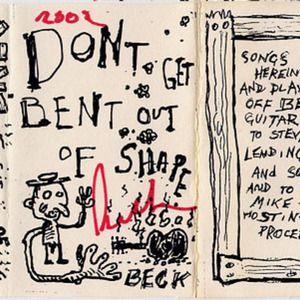 2002
DON'T
GET
BENT OUT
OF SHAPE
BECK
SONGS
HEREIN
AND PLAY
OFF
GUITAR
TO STEV
LENDING
AND SO
AND TO
MIKE
HOSTING
PROCEE